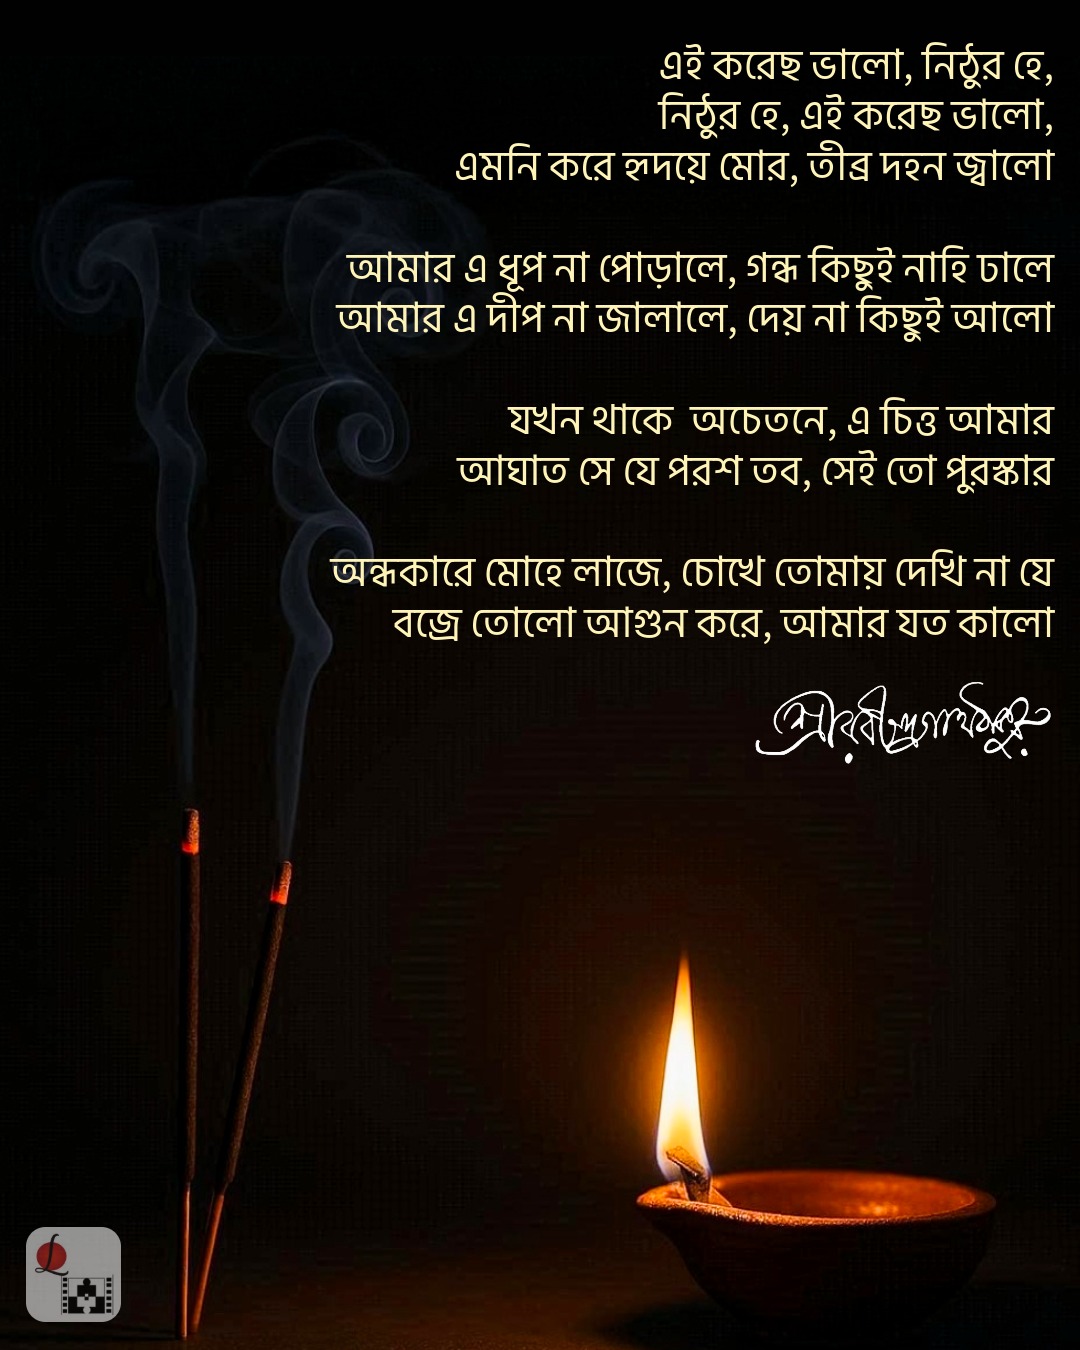 এই করেছ ভালো, নিঠুর হে,
নিঠুর হে, এই করেছ ভালো,
এমনি করে হৃদয়ে মোর, তীব্র দহন জ্বালো
আমার এ ধূপ না পোড়ালে, গন্ধ কিছুই নাহি ঢালে
আমার এ দীপ না জালালে, দেয় না কিছুই আলো
যখন থাকে অচেতনে, এ চিত্ত আমার
আঘাত সে যে পরশ তব, সেই তো পুরস্কার
অন্ধকারে মোহে লাজে, চোখে তোমায় দেখি না যে
বজ্রে তোলো আগুন করে, আমার যত কালো
শ্রীরবীন্দ্রনাথ ঠাকুর
L